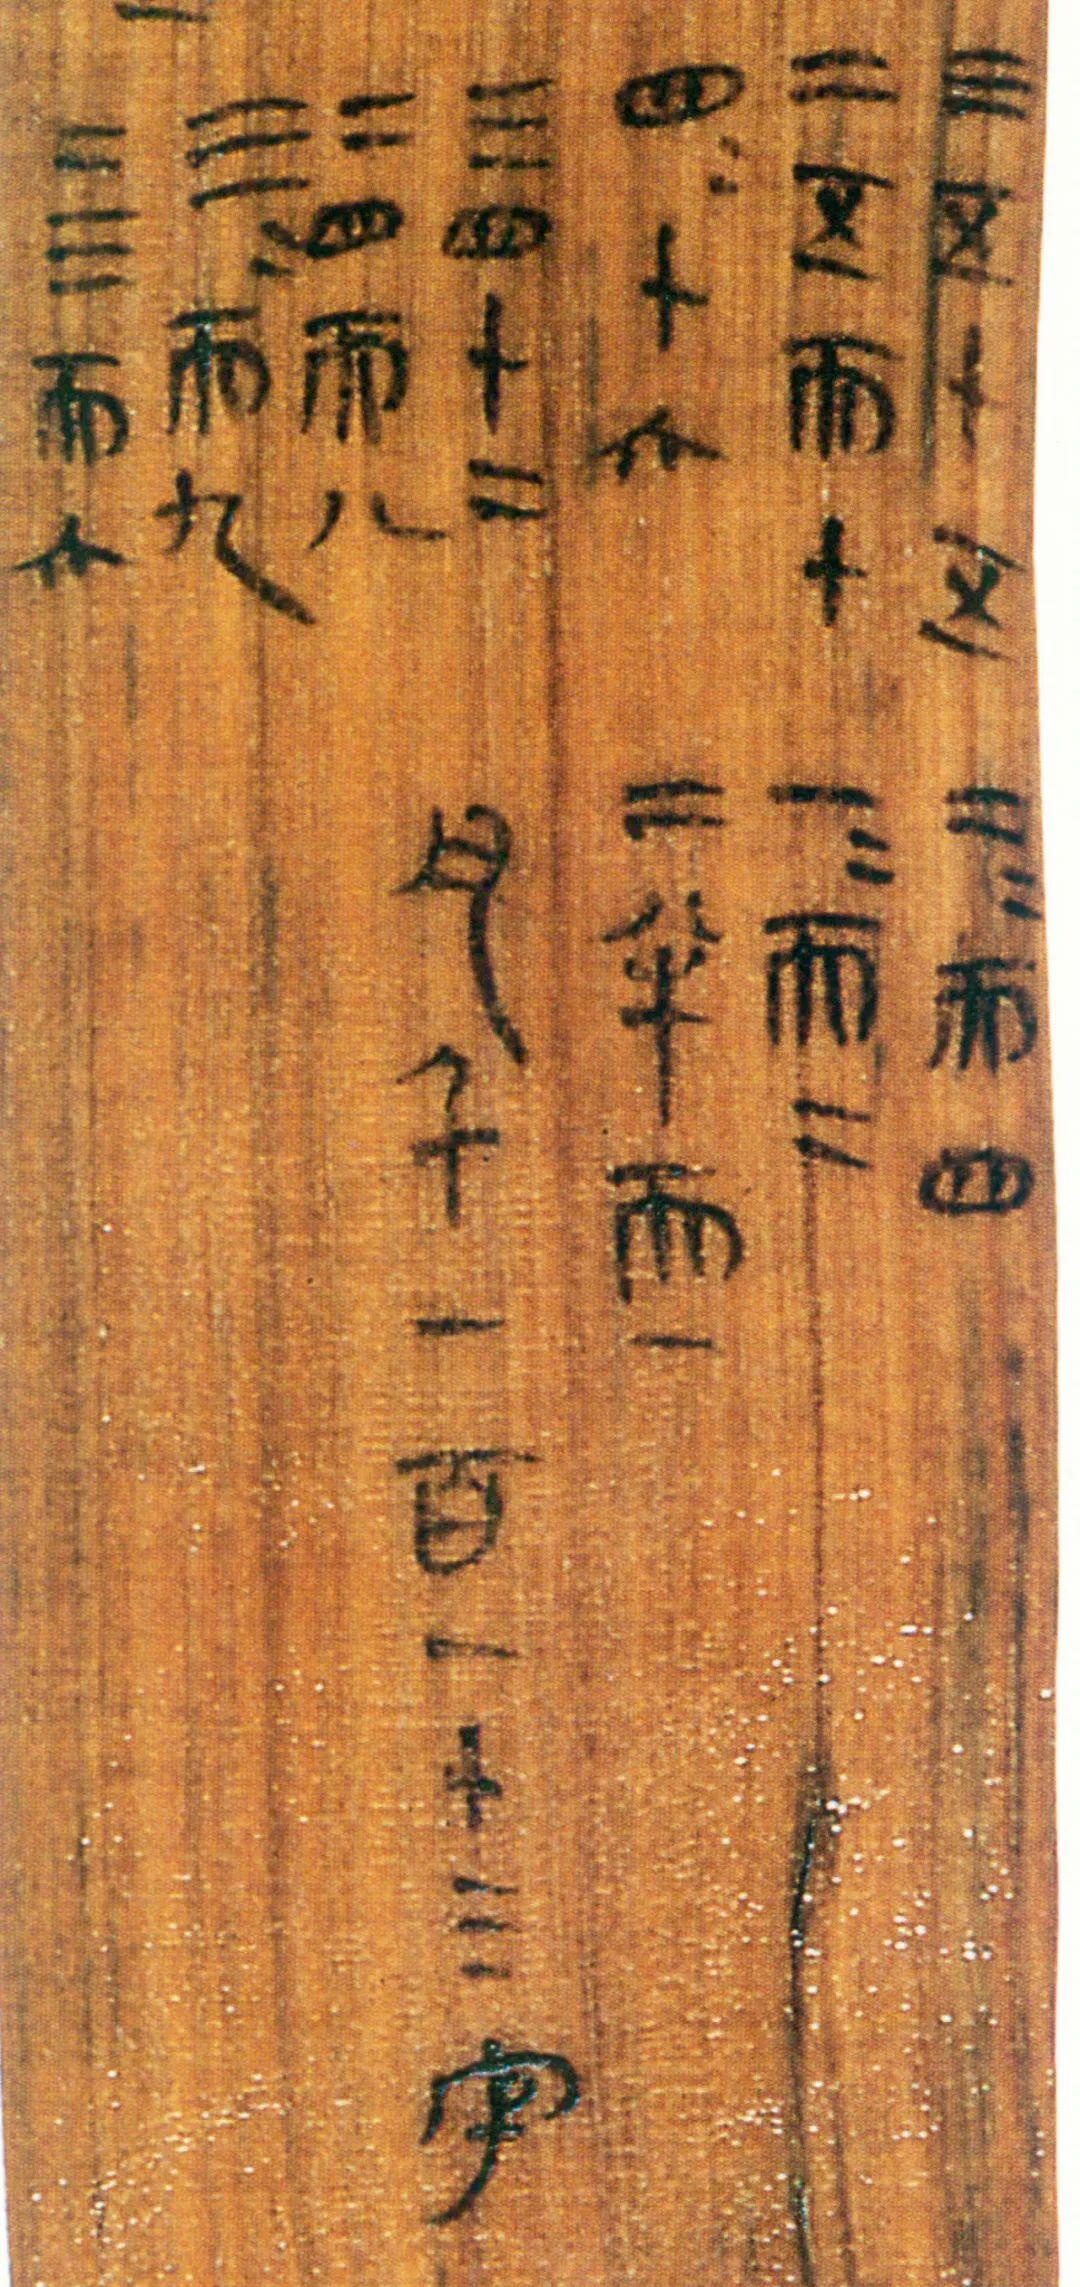 三五十五
二五而十
四〓十六
三四十二
二四而八
三〓而九
二三而六
二〓而四
一〓而二
二半而一
凡千一百一十三字